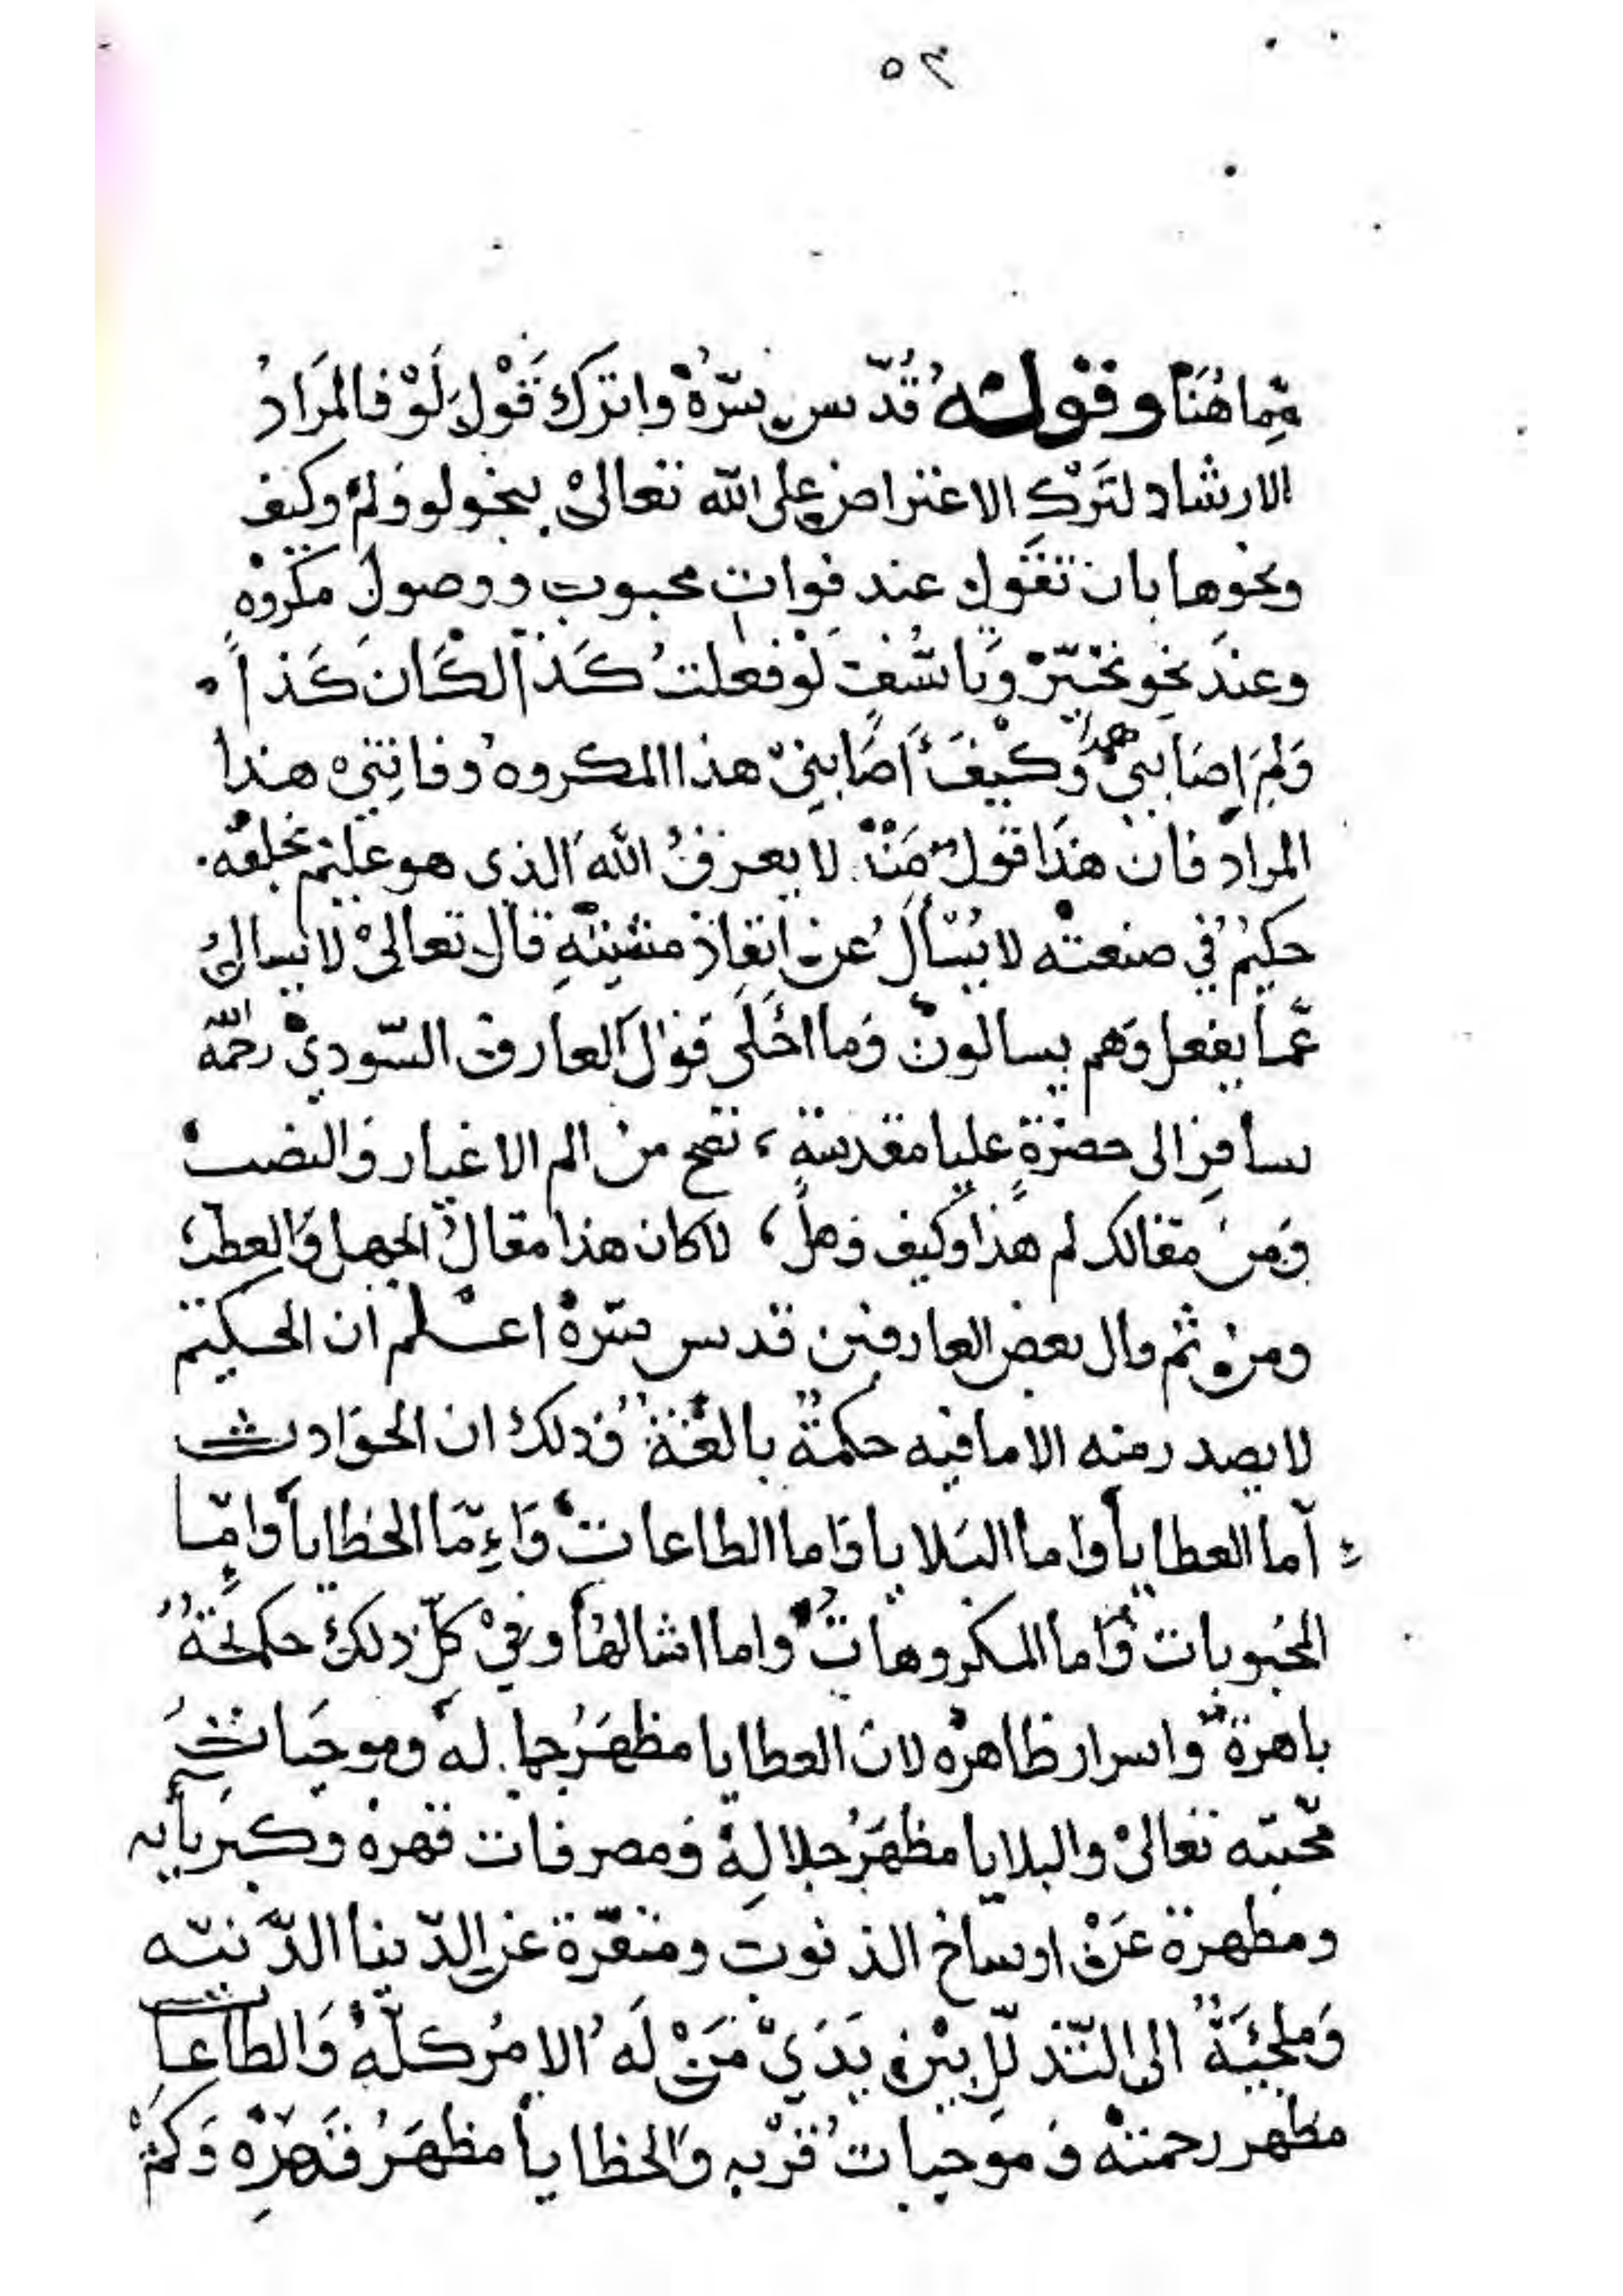 ٥٣
مما هُنَا وقوله قُدّس سرّهُ واترك قَوْلَ لَوْ فالمَرادُ
الارشاد لتَرْكِ الاعتراض على الله تعالىْ بنحو لو وَلِمْ وكيف
ونحوها بان تقول عند فوات محبوب ووصول مكروْهٍ
وعندَ نحو تحَيّرْ وتاسّفٍ لَوْ فعلتُ كَذا لكَانَ كَذا
وَلِمَ اصَابَنيْ هذا وَكيْفَ أصَابَنِيْ هذا المكروه وفاتَنِيْ هذا
المراد فان هذَا قولُ مَنْ لا يعرفُ اللهَ الذى هو عليْم بخلقه
حكيْمٌ في صنعته لا يُسْأَلُ عن انفاذ مشيئتِهِ قال تعالىْ لا يسالُ
عَمّا يفعل وَهم يسالون وَما احْلَى قوْلَ العارف السّوديْ رحمهُ الله
سافِر الى حضرَةٍ عليا مقدسةٍ ، تصح من الم الاغيار وَالنصب
وَمن مقالك لم هذا وكيف وَهلْ ، لا كان هذا مقالُ الجهل وَالعطب
ومن ثم قال بعض العارفين قدس سرّهْ اعلم ان الحكيم
لا يصدر منه الا ما فيه حكمةٌ بالغةٌ وَذلك ان الحوَادث
اما العطايا وَاما البَلايا وَاما الطاعات وَاِمّا الخطايا وامّا
المحبوبات وَاما المكروهات واما امثالها وفيْ كلّ ذلك حكمَةٌ
باهرةٌ وَاسرار ظاهره لان العطايا مظهَرُ جماله وموجَباتُ
محّبته تعالىْ والبلايا مظهَرُ جلالِهْ وَمصرفات قهره وكبريائه
ومطهرة عَنْ اوساخ الذنوب ومنفّرة عن الدّنيا الدّنيّه
وَملجئَةٌ الى التّذلّلِ بيْن يَدَيْ مَنْ لَه الامْر كلّهْ وَالطاعات
مظهر رحمته وَموَجبات قرْبه وَالخطايا مظهَرُ قَهرِهْ وَكمْ